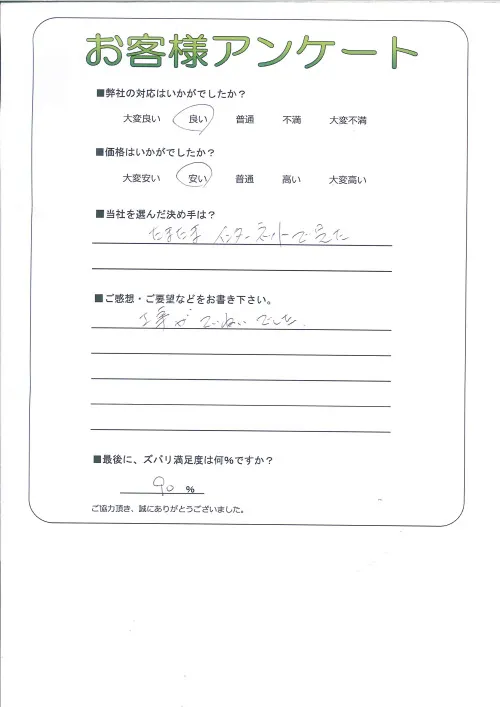 お客様アンケート
■弊社の対応はいかがでしたか？
大変良い 良い 普通 不満 大変不満
■価格はいかがでしたか？
大変安い 安い 普通 高い 大変高い
■当社を選んだ決め手は？
たまたま インターネットで見た
■ご感想・ご要望などをお書き下さい。
工事が ていねいでした.
■最後に、ズバリ満足度は何％ですか？
90 %
ご協力頂き、誠にありがとうございました。